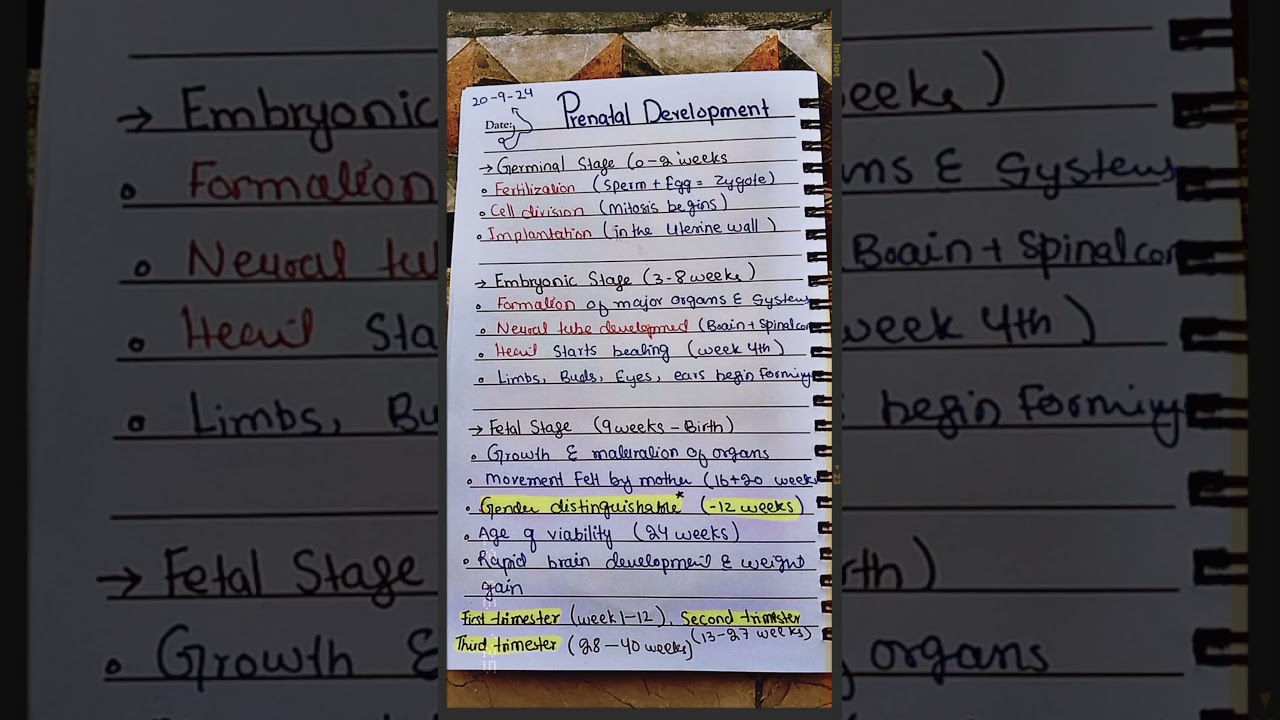 20-9-24
Date:
Prenatal Development
→ Germinal Stage (0-2 weeks
• Fertilization (Sperm + Egg = Zygote)
• Cell division (Mitosis begins)
• Implantation (in the Uterine wall)
→ Embryonic Stage (3-8 weeks)
• Formation of major organs & Systems
• Neural tube developmed (Brain + Spinal cor
• Heart Starts beating (week 4th)
• Limbs, Buds, Eyes, ears begin Forming
→ Fetal Stage (9 weeks - Birth)
• Growth & maturation of organs
• Movement Felt by mother (16+20 weeks
• Gender distinguishable* (-12 weeks)
• Age of viability (24 weeks)
• Rapid brain development & weight
gain
First trimester (week 1-12), Second trimester
(13-27 weeks)
Third trimester (28-40 weeks)
InShot